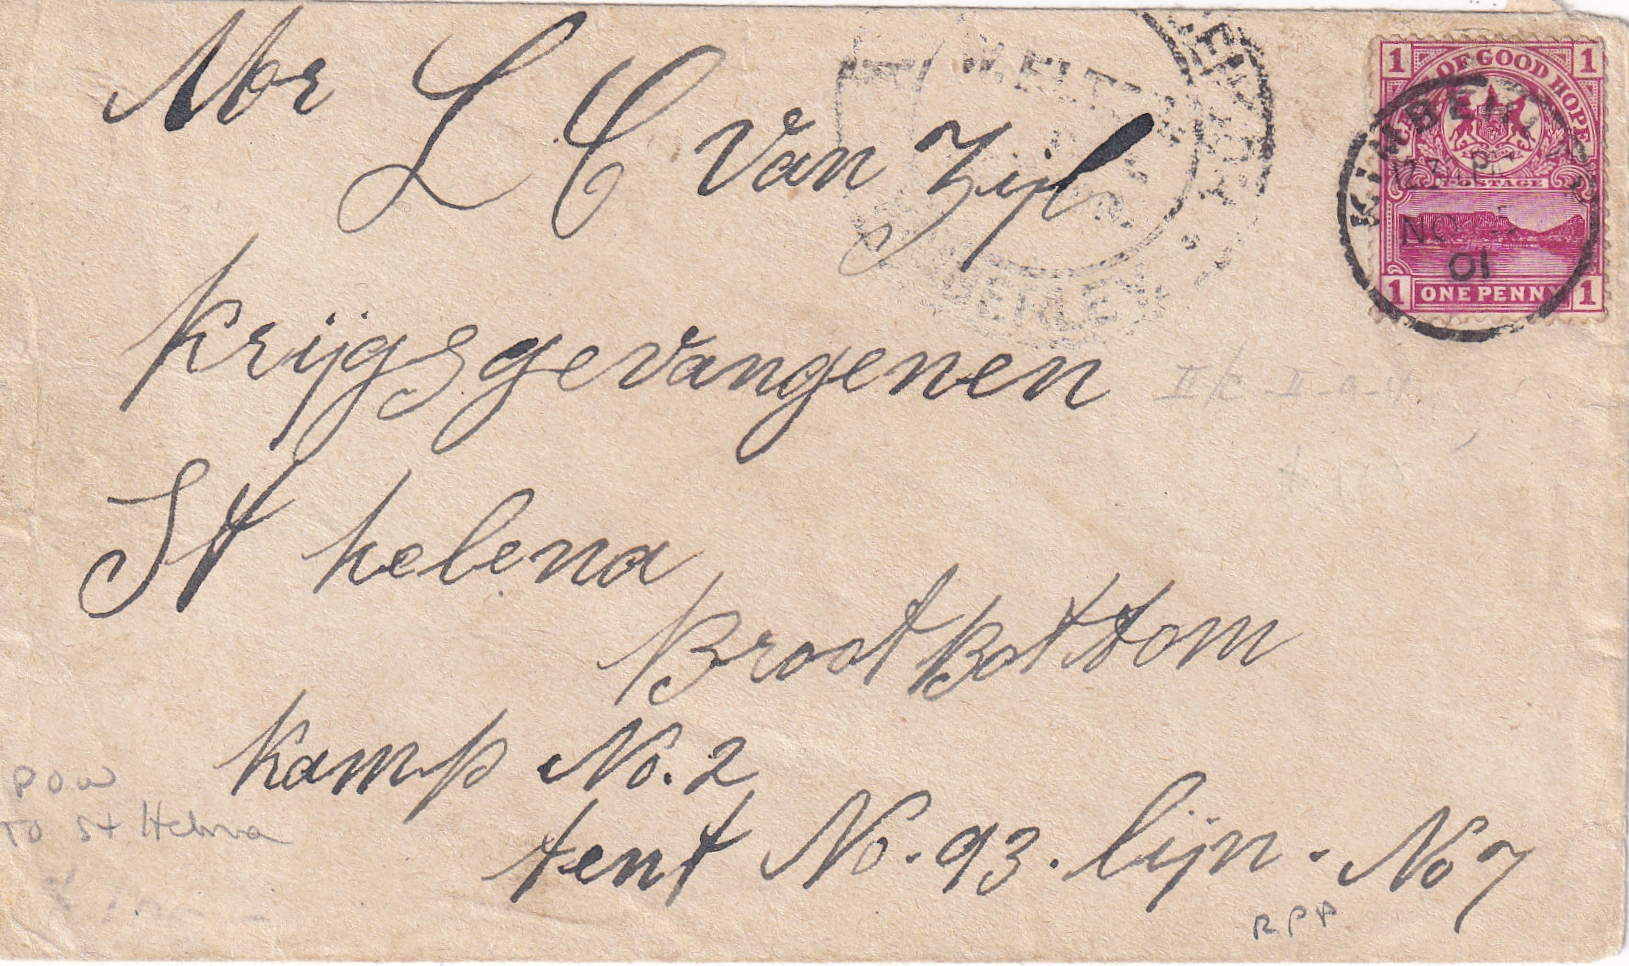 Mr L C Van Zijl
Krijgsgevangenen
St Helena
Broot Bottom
Kamp No. 2
tent No. 93. lijn - No 7
POW
TO St Helena
RPP
1 OF GOOD HOPE 1
POSTAGE
1 ONE PENNY 1
KIMBERLEY
NO
01